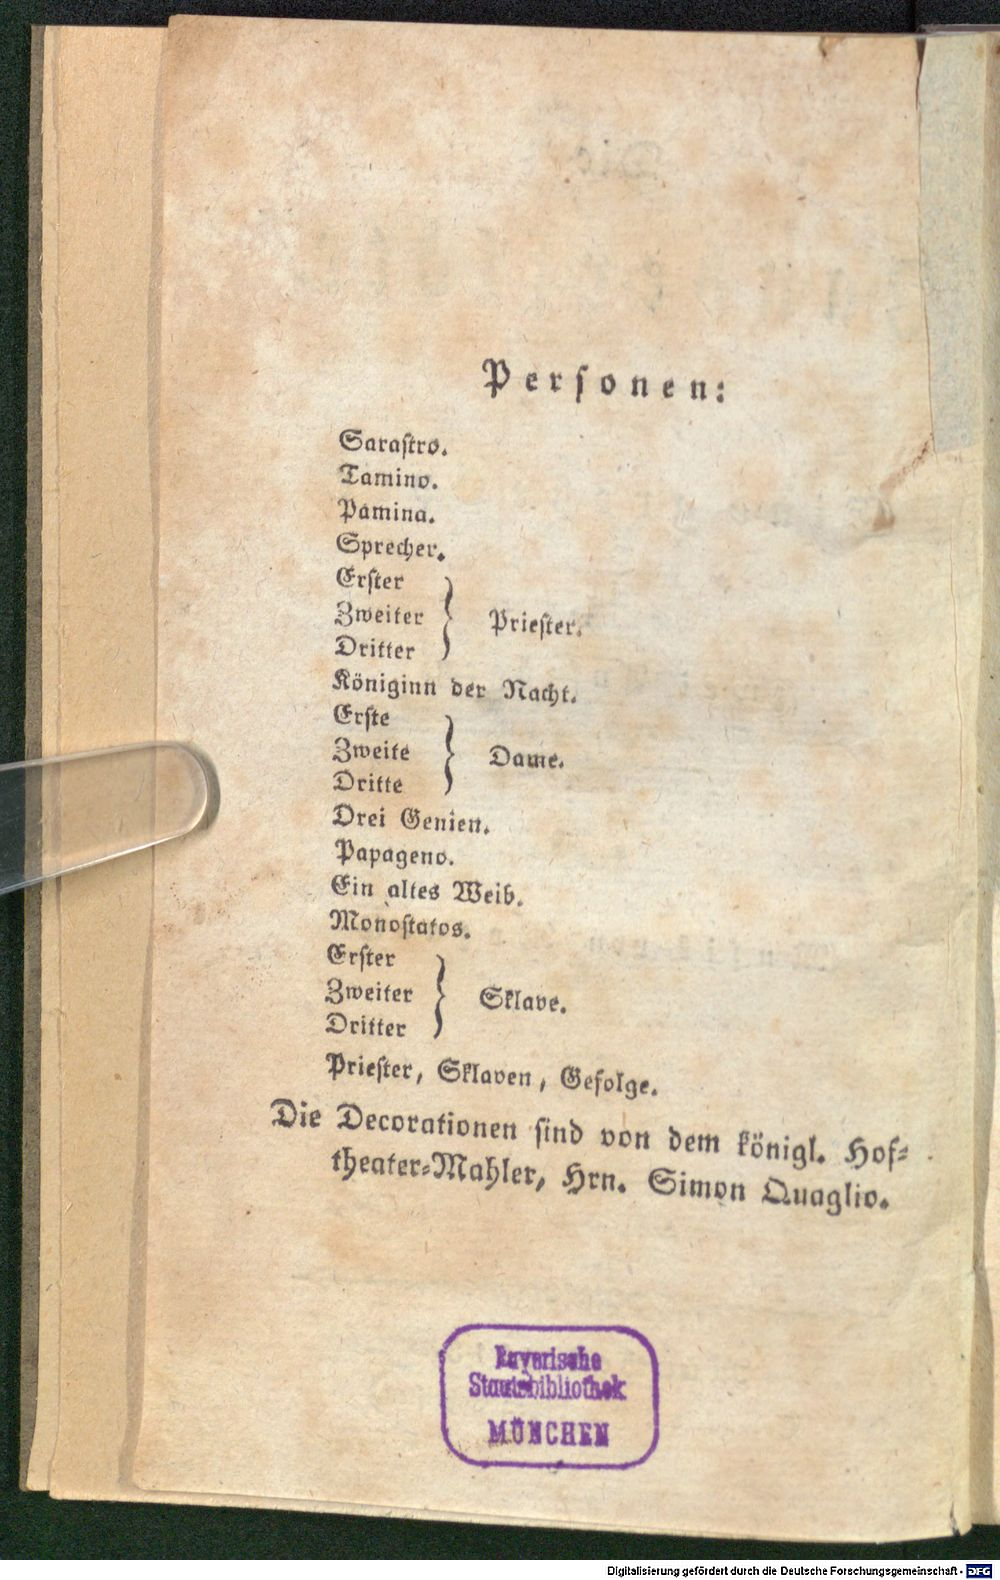 Personen:
Sarastro.
Tamino.
Pamina.
Sprecher.
Erster
Zweiter } Priester.
Dritter
Königinn der Nacht.
Erste
Zweite } Dame.
Dritte
Drei Genien.
Papageno.
Ein altes Weib.
Monostatos.
Erster
Zweiter } Sklave.
Dritter
Priester, Sklaven, Gefolge.
Die Decorationen sind von dem königl. Hof-
theater-Mahler, Hrn. Simon Quaglio.
Bayerische
Staatsbibliothek
MÜNCHEN
Digitalisierung gefördert durch die Deutsche Forschungsgemeinschaft - DFG